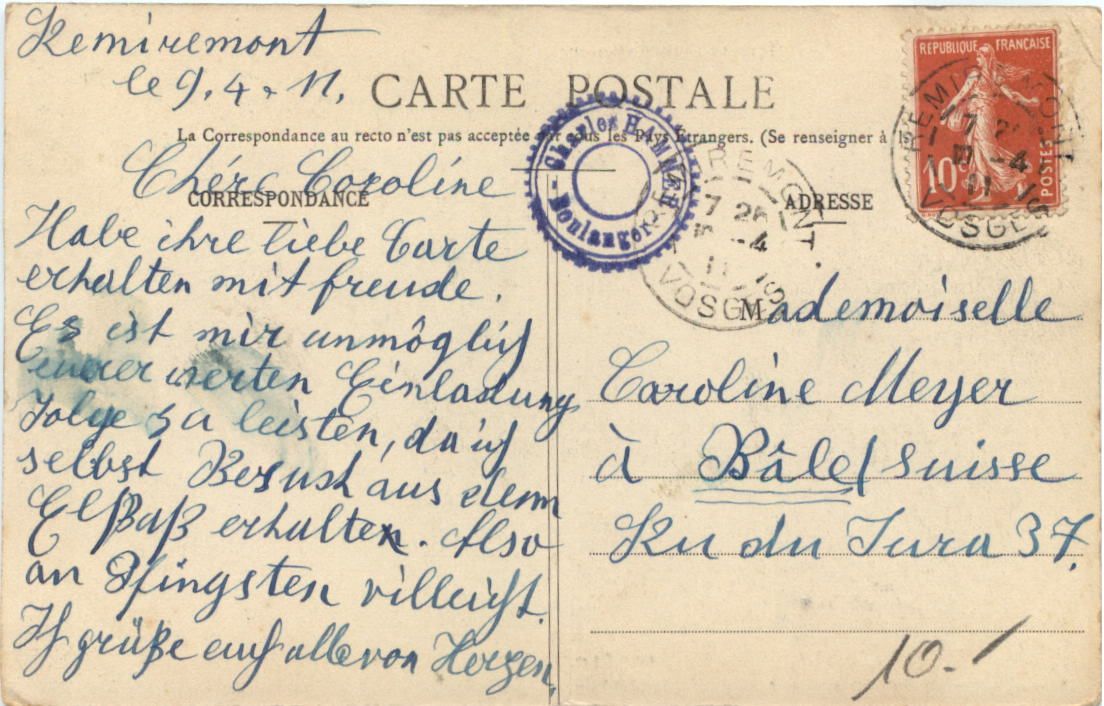 Remiremont
le 9.4.11.
CARTE POSTALE
La Correspondance au recto n'est pas acceptée par tous les Pays Étrangers. (Se renseigner à la
CORRESPONDANCE
ADRESSE
Chére Coroline
Habe ihre liebe Carte
erhalten mit freude.
Es ist mir unmôglich
Eurer werten Einladung
Folge zu leisten, da ich
selbst Besuch aus dem
Elßaß erhalten. Also
an Pfingsten villeicht.
Ich grüße euch alle von Herzen.
Charles
Boulanger
REMIREMONT
7 25
10 -4
11
VOSGES
REPUBLIQUE FRANÇAISE
10c
POSTES
REMIREMONT
7 25
10 -4
11
VOSGES
Mademoiselle
Caroline Meyer
à Bâle/Suisse
Ru du Jura 37.
10.-